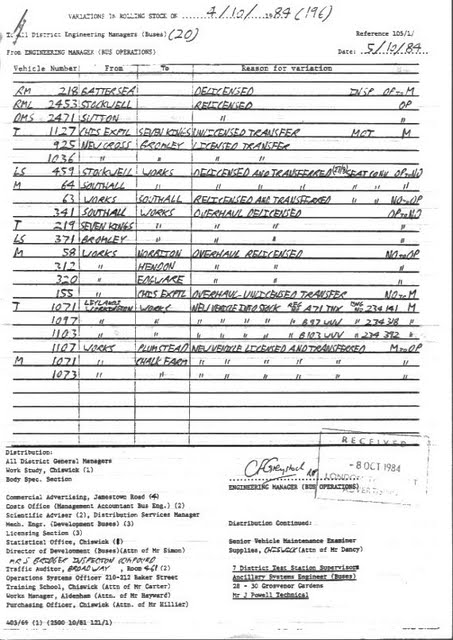 VARIATIONS IN ROLLING STOCK ON 4/10/ 1984 (196)
To All District Engineering Managers (Buses) (20) Reference 105/1/
From ENGINEERING MANAGER (BUS OPERATIONS) Date: 5/10/84
Vehicle Number From To Reason for variation
RM 218 BATTERSEA DELICENSED INSP OP TO M
RML 2453 STOCKWELL RELICENSED OP
DMS 2471 SUTTON " "
T 1127 CHIS EXPTL SEVEN KINGS UNLICENSED TRANSFER MOT M
925 NEW CROSS BROMLEY LICENSED TRANSFER
1036 " " "
LS 459 STOCKWELL WORKS DELICENSED AND TRANSFERRED SEAT CONV OP TO NO
M 64 SOUTHALL " " " " " "
63 WORKS SOUTHALL RELICENSED AND TRANSFERRED " " NO TO OP
341 SOUTHALL WORKS OVERHAUL DELICENSED OP TO NO
T 219 SEVEN KINGS " " " "
LS 371 BROMLEY " " " "
M 58 WORKS NORBITON OVERHAUL RELICENSED NO TO OP
312 " HENDON " " "
320 " EDGWARE " " "
155 " CHIS EXPTL OVERHAUL-UNLICENSED TRANSFER NO TO M
T 1071 LEYLANDS WORKINGTON WORKS NEW VEHICLE INTO STOCK REG NO A71 THX 234141 M
1097 " " " " " " B97 WUV " 234318 "
1103 " " " " " " B103 WUV " 234392 "
1107 WORKS PLUMSTEAD NEW VEHICLE LICENSED AND TRANSFERRED M TO OP
M 1071 " CHALK FARM " " " " "
1073 " " " " " " "
Distribution:
All District General Managers
Work Study, Chiswick (1)
Body Spec. Section
RECEIVED
-8 OCT 1984
LONDON
ADVERTISING
ENGINEERING MANAGER (BUS OPERATIONS)
Commercial Advertising, Jamestown Road (4)
Costs Office (Management Accountant Bus Eng.) (2)
Scientific Adviser (2), Distribution Services Manager
Mech. Engr. (Development Buses) (3)
Licensing Section (3)
Statistical Office, Chiswick
Director of Development (Buses)(Attn of Mr Simon)
MR S BRIDGER INSPECTION COMPOUND
Traffic Auditor, BROADWAY, Room (2)
Operations Systems Officer 210-212 Baker Street
Training School, Chiswick (Attn of Mr Carter)
Works Manager, Aldenham (Attn. of Mr Hayward)
Purchasing Officer, Chiswick (Attn of Mr Hillier)
Distribution Continued:
Senior Vehicle Maintenance Examiner
Supplies, CHISWICK (Attn of Mr Dancy)
7 District Test Station Supervisors
Ancillary Systems Engineer (Buses)
28 - 30 Grosvenor Gardens
Mr J Powell Technical
403/69 (1) (2500 10/81 121/1)